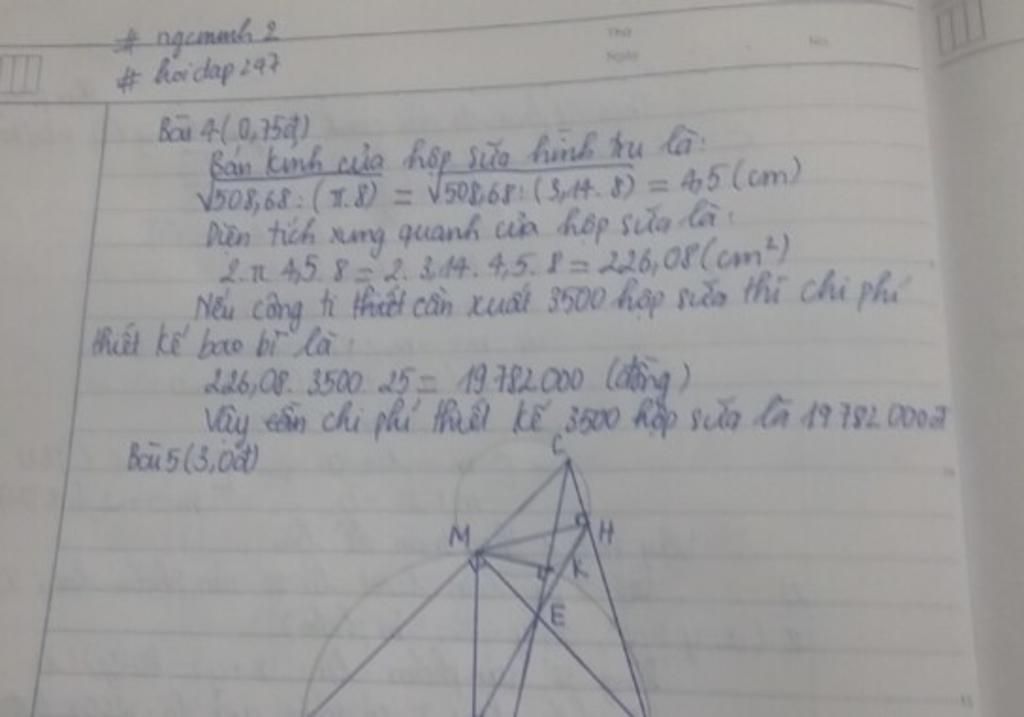 # ngcmmh 2
# hoidap247
Thứ
Ngày
No.
Bài 4 (0,75đ)
Bán kính của hộp sữa hình trụ là:
√508,68 : (π.8) = √508,68 : (3,14. 8) = 4,5 (cm)
Diện tích xung quanh của hộp sữa là:
2.π 4,5. 8 = 2. 3,14. 4,5. 8 = 226,08 (cm²)
Nếu công ti thiết cần xuất 3500 hộp sữa thì chi phí
thiết kế bao bì là:
226,08. 3500. 25 = 19 782 000 (đồng)
Vậy cần chi phí thiết kế 3500 hộp sữa là 19 782 000đ
Bài 5 (3,0đ)
C
M
H
K
E